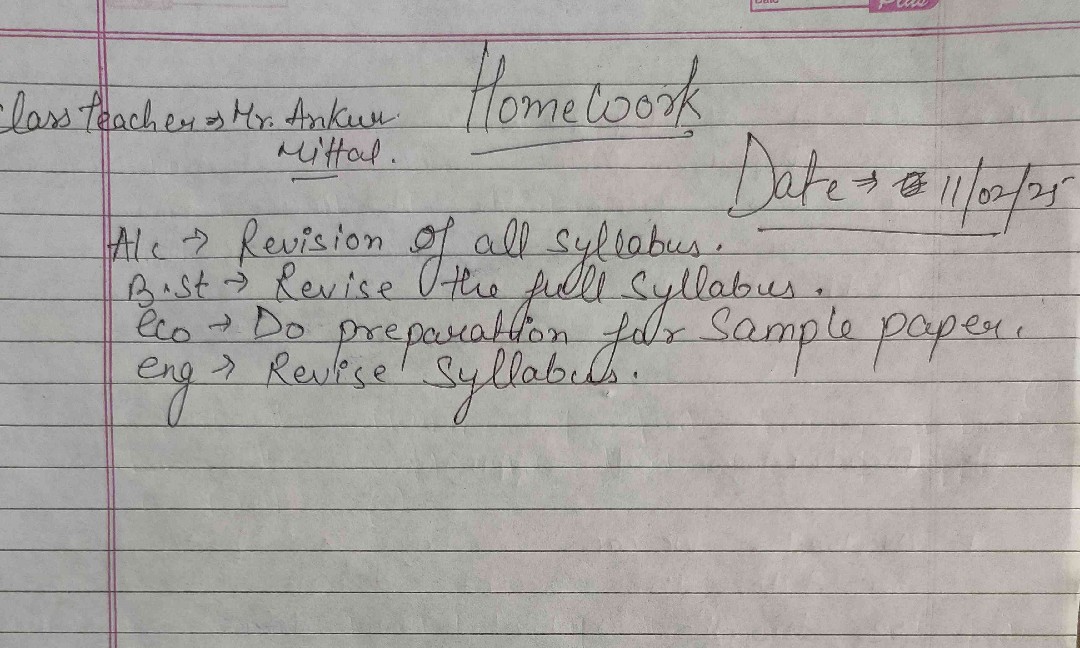 Date
Plus
Homework
Class teacher → Mr. Ankur
Mittal.
Date → 11/02/25
A/c → Revision of all syllabus.
B.St → Revise the full syllabus.
eco → Do preparation for Sample paper.
eng → Revise Syllabus.